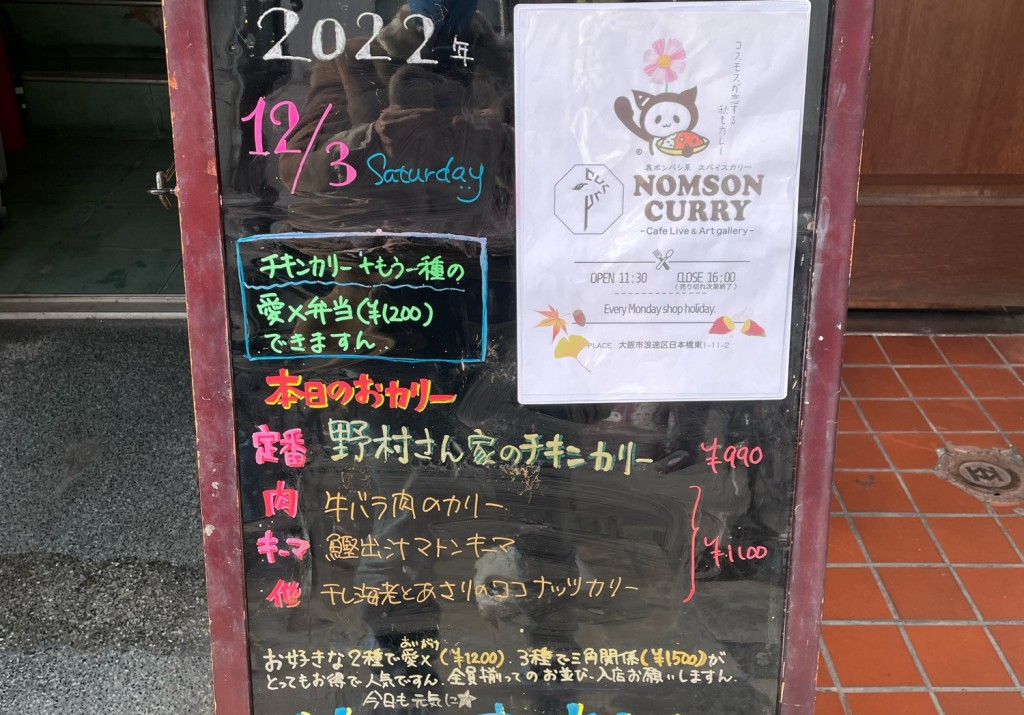 2022年
12/3 Saturday
チキンカリー+もう一種の
愛×弁当(¥1200)
できますん
本日のおカリー
定番 野村さん家のチキンカリー ¥990
肉 牛バラ肉のカリー
キーマ 鰹出汁マトンキーマ ¥1100
他 干し海老とあさりのココナッツカリー
あいがけ
お好きな2種で愛×(¥1200)、3種で三角関係(¥1500)が
とってもお得で人気ですん。全員揃ってのお並び、入店お願いしますん。
今日も元気に☆
コスモスが恋する
秋もカレー
裏ポンバシ系 スパイスカリー
NOMSON
CURRY
-Cafe Live & Art gallery-
OPEN 11:30 CLOSE 16:00
(売り切れ次第終了)
Every Monday shop holiday.
PLACE 大阪市浪速区日本橋東1-11-2